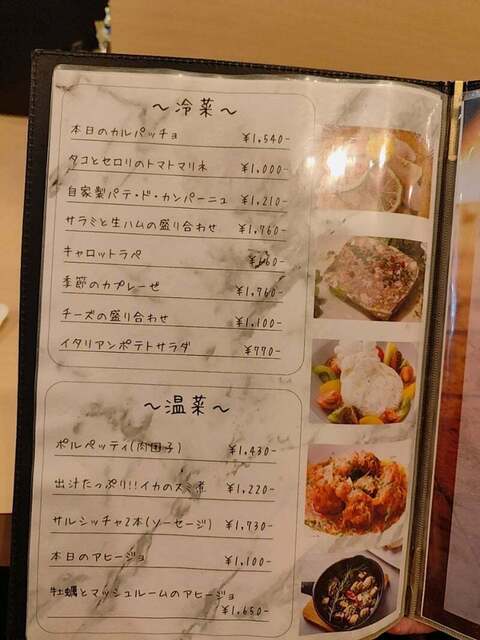 ～冷菜～
本日のカルパッチョ ¥1,540-
タコとセロリのトマトマリネ ¥1,000-
自家製パテ・ド・カンパーニュ ¥1,210-
サラミと生ハムの盛り合わせ ¥1,760-
キャロットラペ
季節のカプレーゼ ¥1,760-
チーズの盛り合わせ ¥1,100-
イタリアンポテトサラダ ¥770-
～温菜～
ポルペッティ(肉団子) ¥1,430-
出汁たっぷり!!イカのスミ煮 ¥1,220-
サルシッチャ2本(ソーセージ) ¥1,730-
本日のアヒージョ ¥1,100-
牡蠣とマッシュルームのアヒージョ
¥1,650-